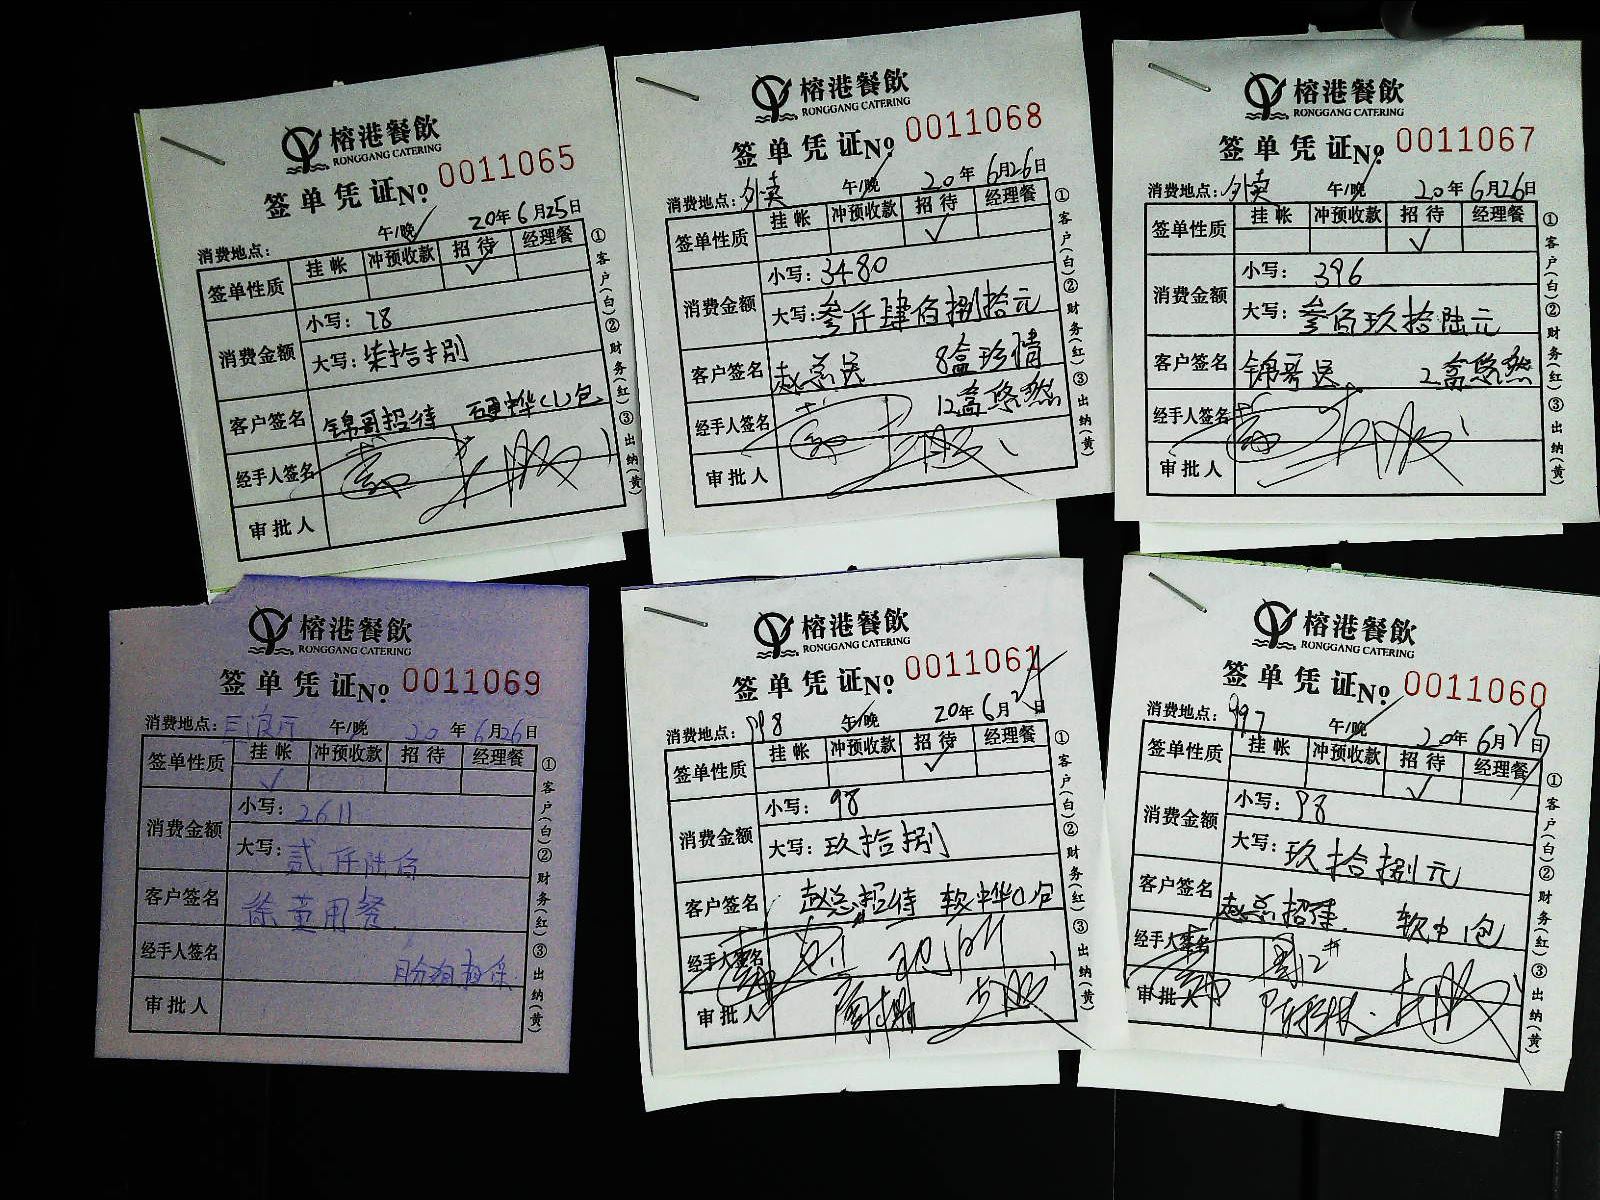 榕港餐飲
RONGGANG CATERING
签单凭证No. 0011065
午/晚 20年6月25日
消费地点:
签单性质 挂帐 冲预收款 招待 经理餐
✓
消费金额 小写: 78
大写: 柒拾捌
客户签名 锦哥招待 硬中华(1)包
经手人签名
审批人
①客户(白)②财务(红)③出纳(黄)
榕港餐飲
RONGGANG CATERING
签单凭证No. 0011068
消费地点: 外卖 午/晚 20年6月26日
签单性质 挂帐 冲预收款 招待 经理餐
✓
消费金额 小写: 3480
大写: 叁仟肆佰捌拾元
客户签名 赵总送 8盒珍情
经手人签名 12盒悠然
审批人
①客户(白)②财务(红)③出纳(黄)
榕港餐飲
RONGGANG CATERING
签单凭证No. 0011067
消费地点: 外卖 午/晚 20年6月26日
签单性质 挂帐 冲预收款 招待 经理餐
✓
消费金额 小写: 396
大写: 叁佰玖拾陆元
客户签名 锦哥送 2盒悠然
经手人签名
审批人
①客户(白)②财务(红)③出纳(黄)
榕港餐飲
RONGGANG CATERING
签单凭证No. 0011069
消费地点: 午/晚 20年6月26日
签单性质 挂帐 冲预收款 招待 经理餐
✓
消费金额 小写: 2611
大写: 贰仟陆佰
客户签名 徐董用餐
经手人签名
审批人
①客户(白)②财务(红)③出纳(黄)
榕港餐飲
RONGGANG CATERING
签单凭证No. 0011061
消费地点: 998 午/晚 20年6月24日
签单性质 挂帐 冲预收款 招待 经理餐
✓
消费金额 小写: 98
大写: 玖拾捌
客户签名 赵总招待 软中华(1)包
经手人签名
审批人
①客户(白)②财务(红)③出纳(黄)
榕港餐飲
RONGGANG CATERING
签单凭证No. 0011060
消费地点: 997 午/晚 20年6月23日
签单性质 挂帐 冲预收款 招待 经理餐
✓
消费金额 小写: 98
大写: 玖拾捌元
客户签名 赵总招待 软中1包
经手人签名
审批人
①客户(白)②财务(红)③出纳(黄)